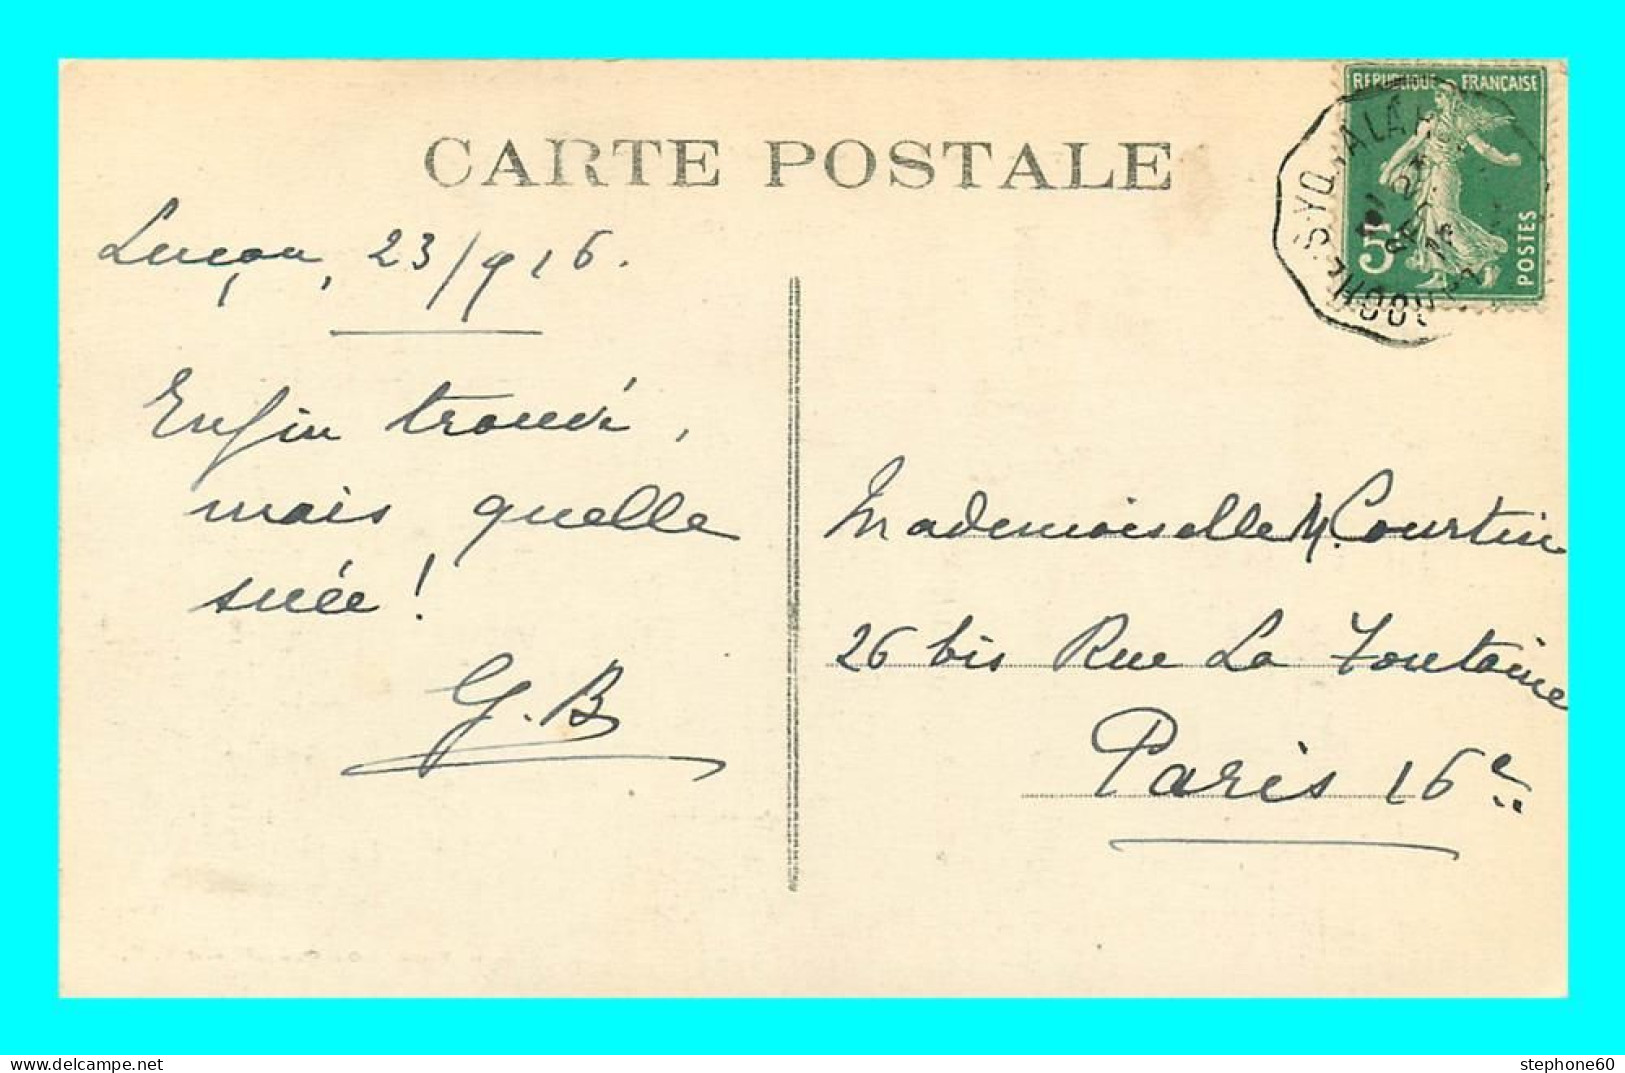 CARTE POSTALE
REPUBLIQUE FRANÇAISE
5c
POSTES
Luçon, 23/9 16.
Enfin trouvé,
mais quelle
suée !
G.B
Mademoiselle M. Courtin
26 bis Rue La Fontaine
Paris 16e
stephone60